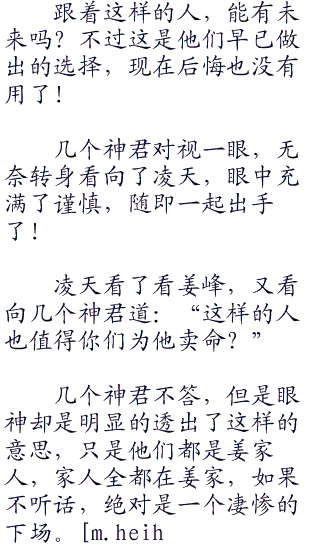 跟着这样的人，能有未
来吗？不过这是他们早已做
出的选择，现在后悔也没有
用了！
几个神君对视一眼，无
奈转身看向了凌天，眼中充
满了谨慎，随即一起出手
了！
凌天看了看姜峰，又看
向几个神君道：“这样的人
也值得你们为他卖命？”
几个神君不答，但是眼
神却是明显的透出了这样的
意思，只是他们都是姜家
人，家人全都在姜家，如果
不听话，绝对是一个凄惨的
下场。[m.heih